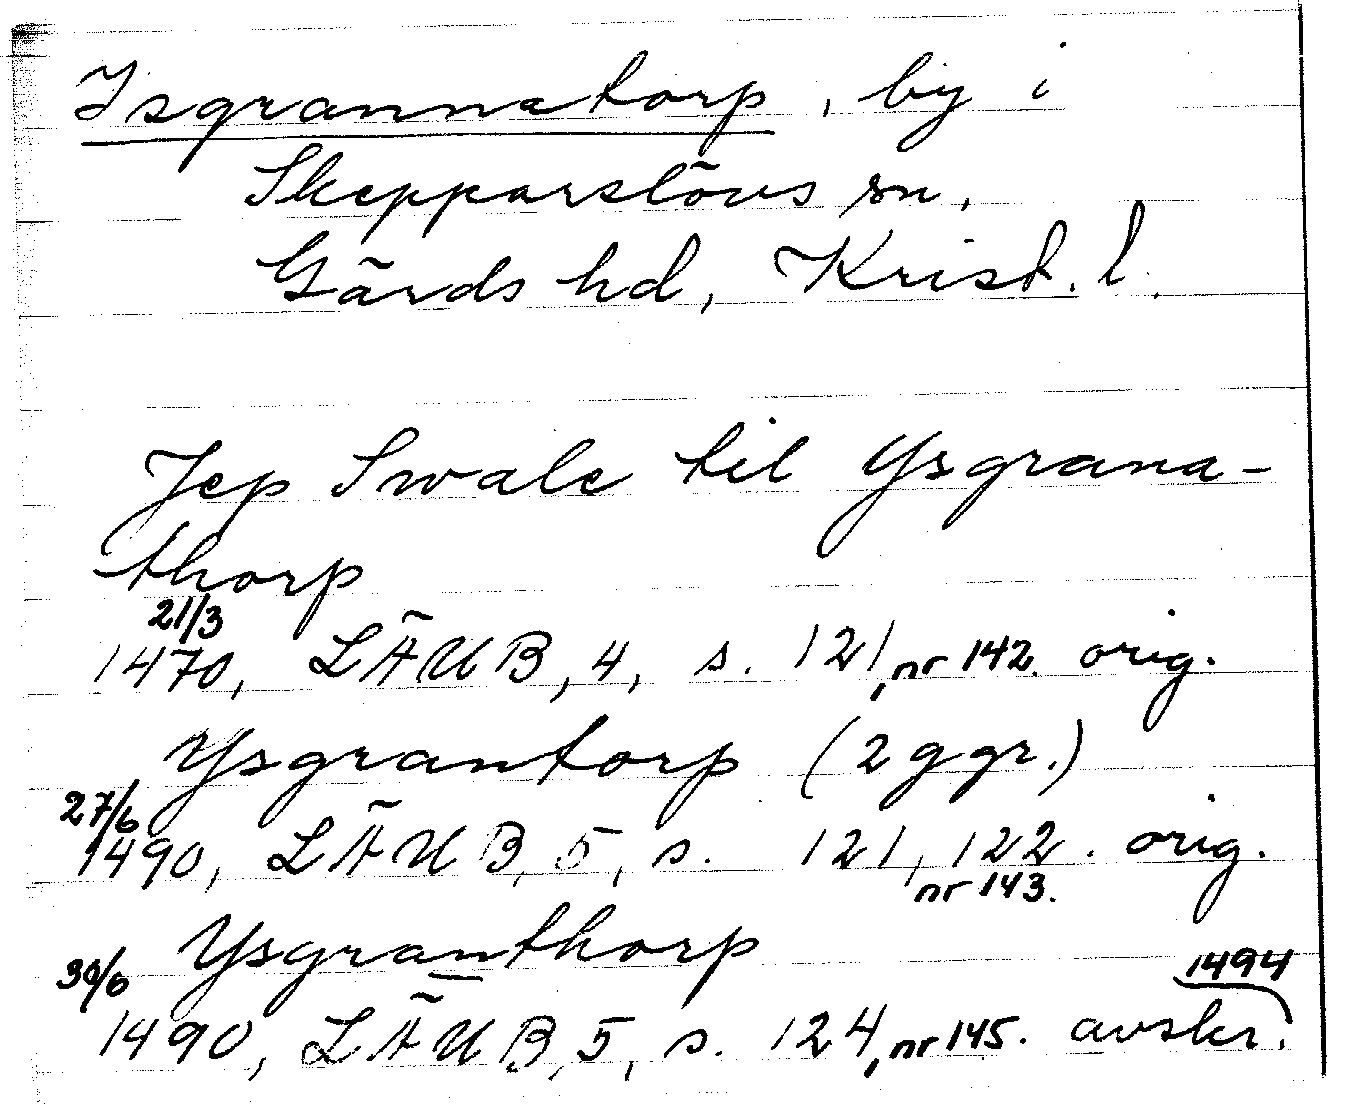 Isgrannatorp, by i
Skepparslövs sn,
Gärds hd, Krist. l.
Jep Swale til Ysgrana-
thorp
21/3
1470, LÄUB, 4, s. 121, nr 142. orig.
Ysgrantorp (2 ggr.)
27/6
1490, LÄUB, 5, s. 121, 122. orig.
nr 143.
Ysgranthorp
30/6
1494
1490, LÄUB, 5, s. 124, nr 145. avskr.